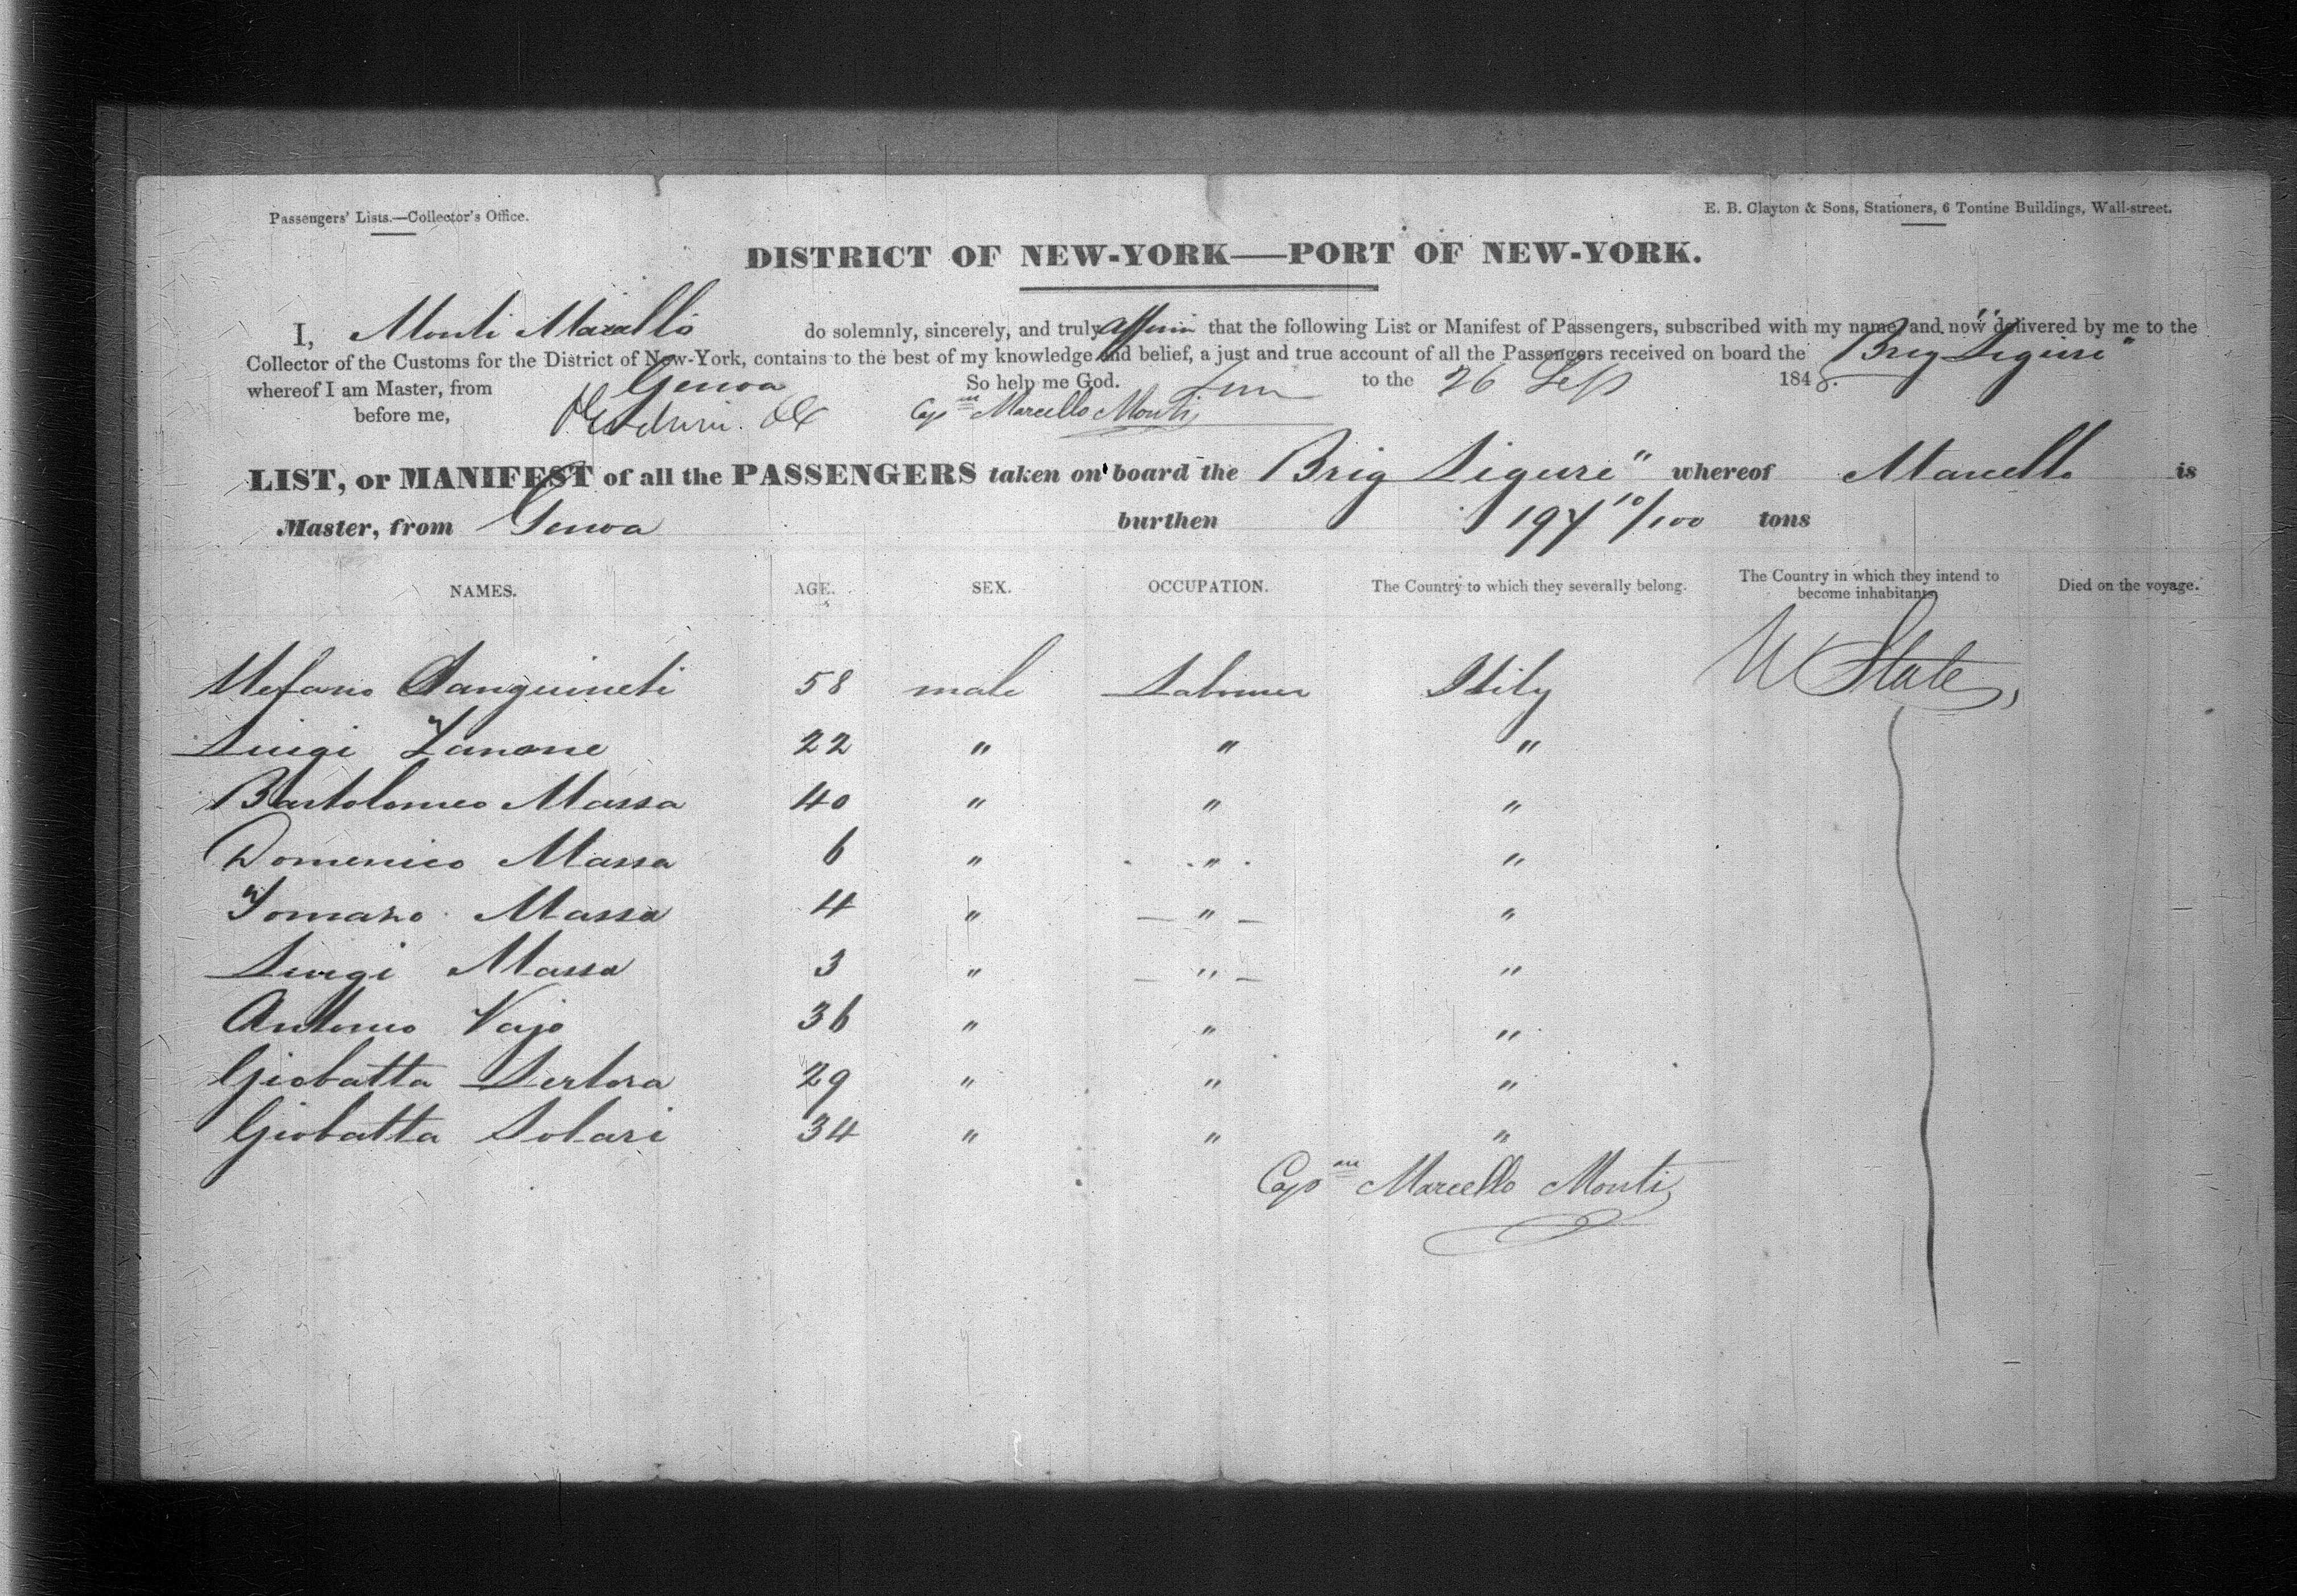 Passengers' Lists.—Collector's Office.
E. B. Clayton & Sons, Stationers, 6 Tontine Buildings, Wall-street.
DISTRICT OF NEW-YORK—PORT OF NEW-YORK.
I, Monti Marcello do solemnly, sincerely, and truly affirm that the following List or Manifest of Passengers, subscribed with my name, and now delivered by me to the
Collector of the Customs for the District of New-York, contains to the best of my knowledge and belief, a just and true account of all the Passengers received on board the Brig Liguri"
whereof I am Master, from Genoa So help me God. to the 26 Sep 1848.
before me, Cap Marcello Monti
LIST, or MANIFEST of all the PASSENGERS taken on board the Brig Liguri" whereof Marcello is
Master, from Genoa burthen 197 10/100 tons
NAMES. AGE. SEX. OCCUPATION. The Country to which they severally belong. The Country in which they intend to become inhabitants. Died on the voyage.
Stefano Sanguineti 58 male Labourer Itily U State,
Luigi Zanone 22 " " "
Bartolomeo Massa 40 " " "
Domenico Massa 6 " " "
Tomazo Massa 4 " — " — "
Luigi Massa 3 " — " — "
Antonio Vajo 36 " " "
Giobatta Sertora 29 " " "
Giobatta Solari 34 " " "
Cap Marcello Monti